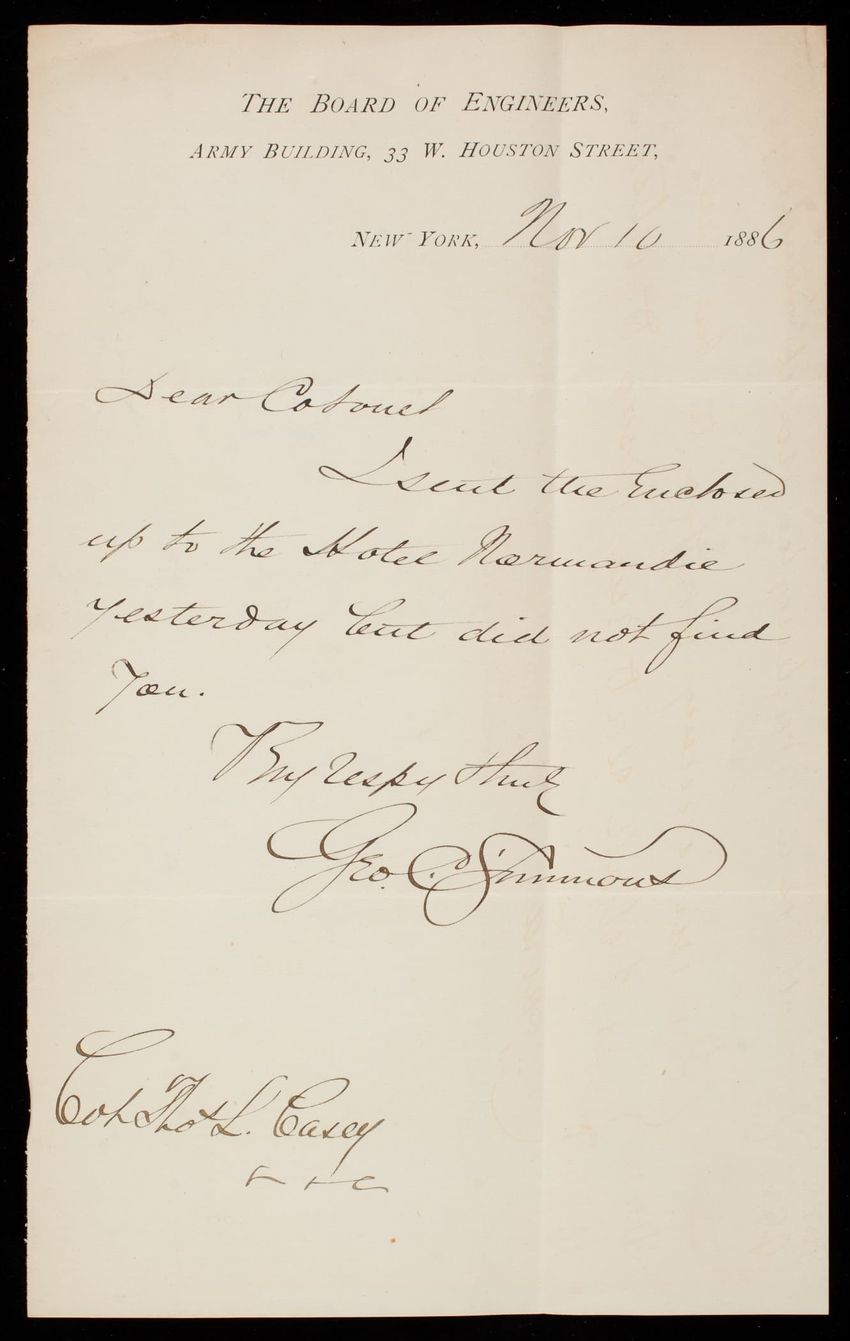 THE BOARD OF ENGINEERS,
ARMY BUILDING, 33 W. HOUSTON STREET,
NEW YORK, Nov 10 1886
Dear Colonel
I sent the Enclosed
up to the Hotel Normandie
yesterday but did not find
you.
Very respy
Geo. C. Simmons
Col Thos L. Casey